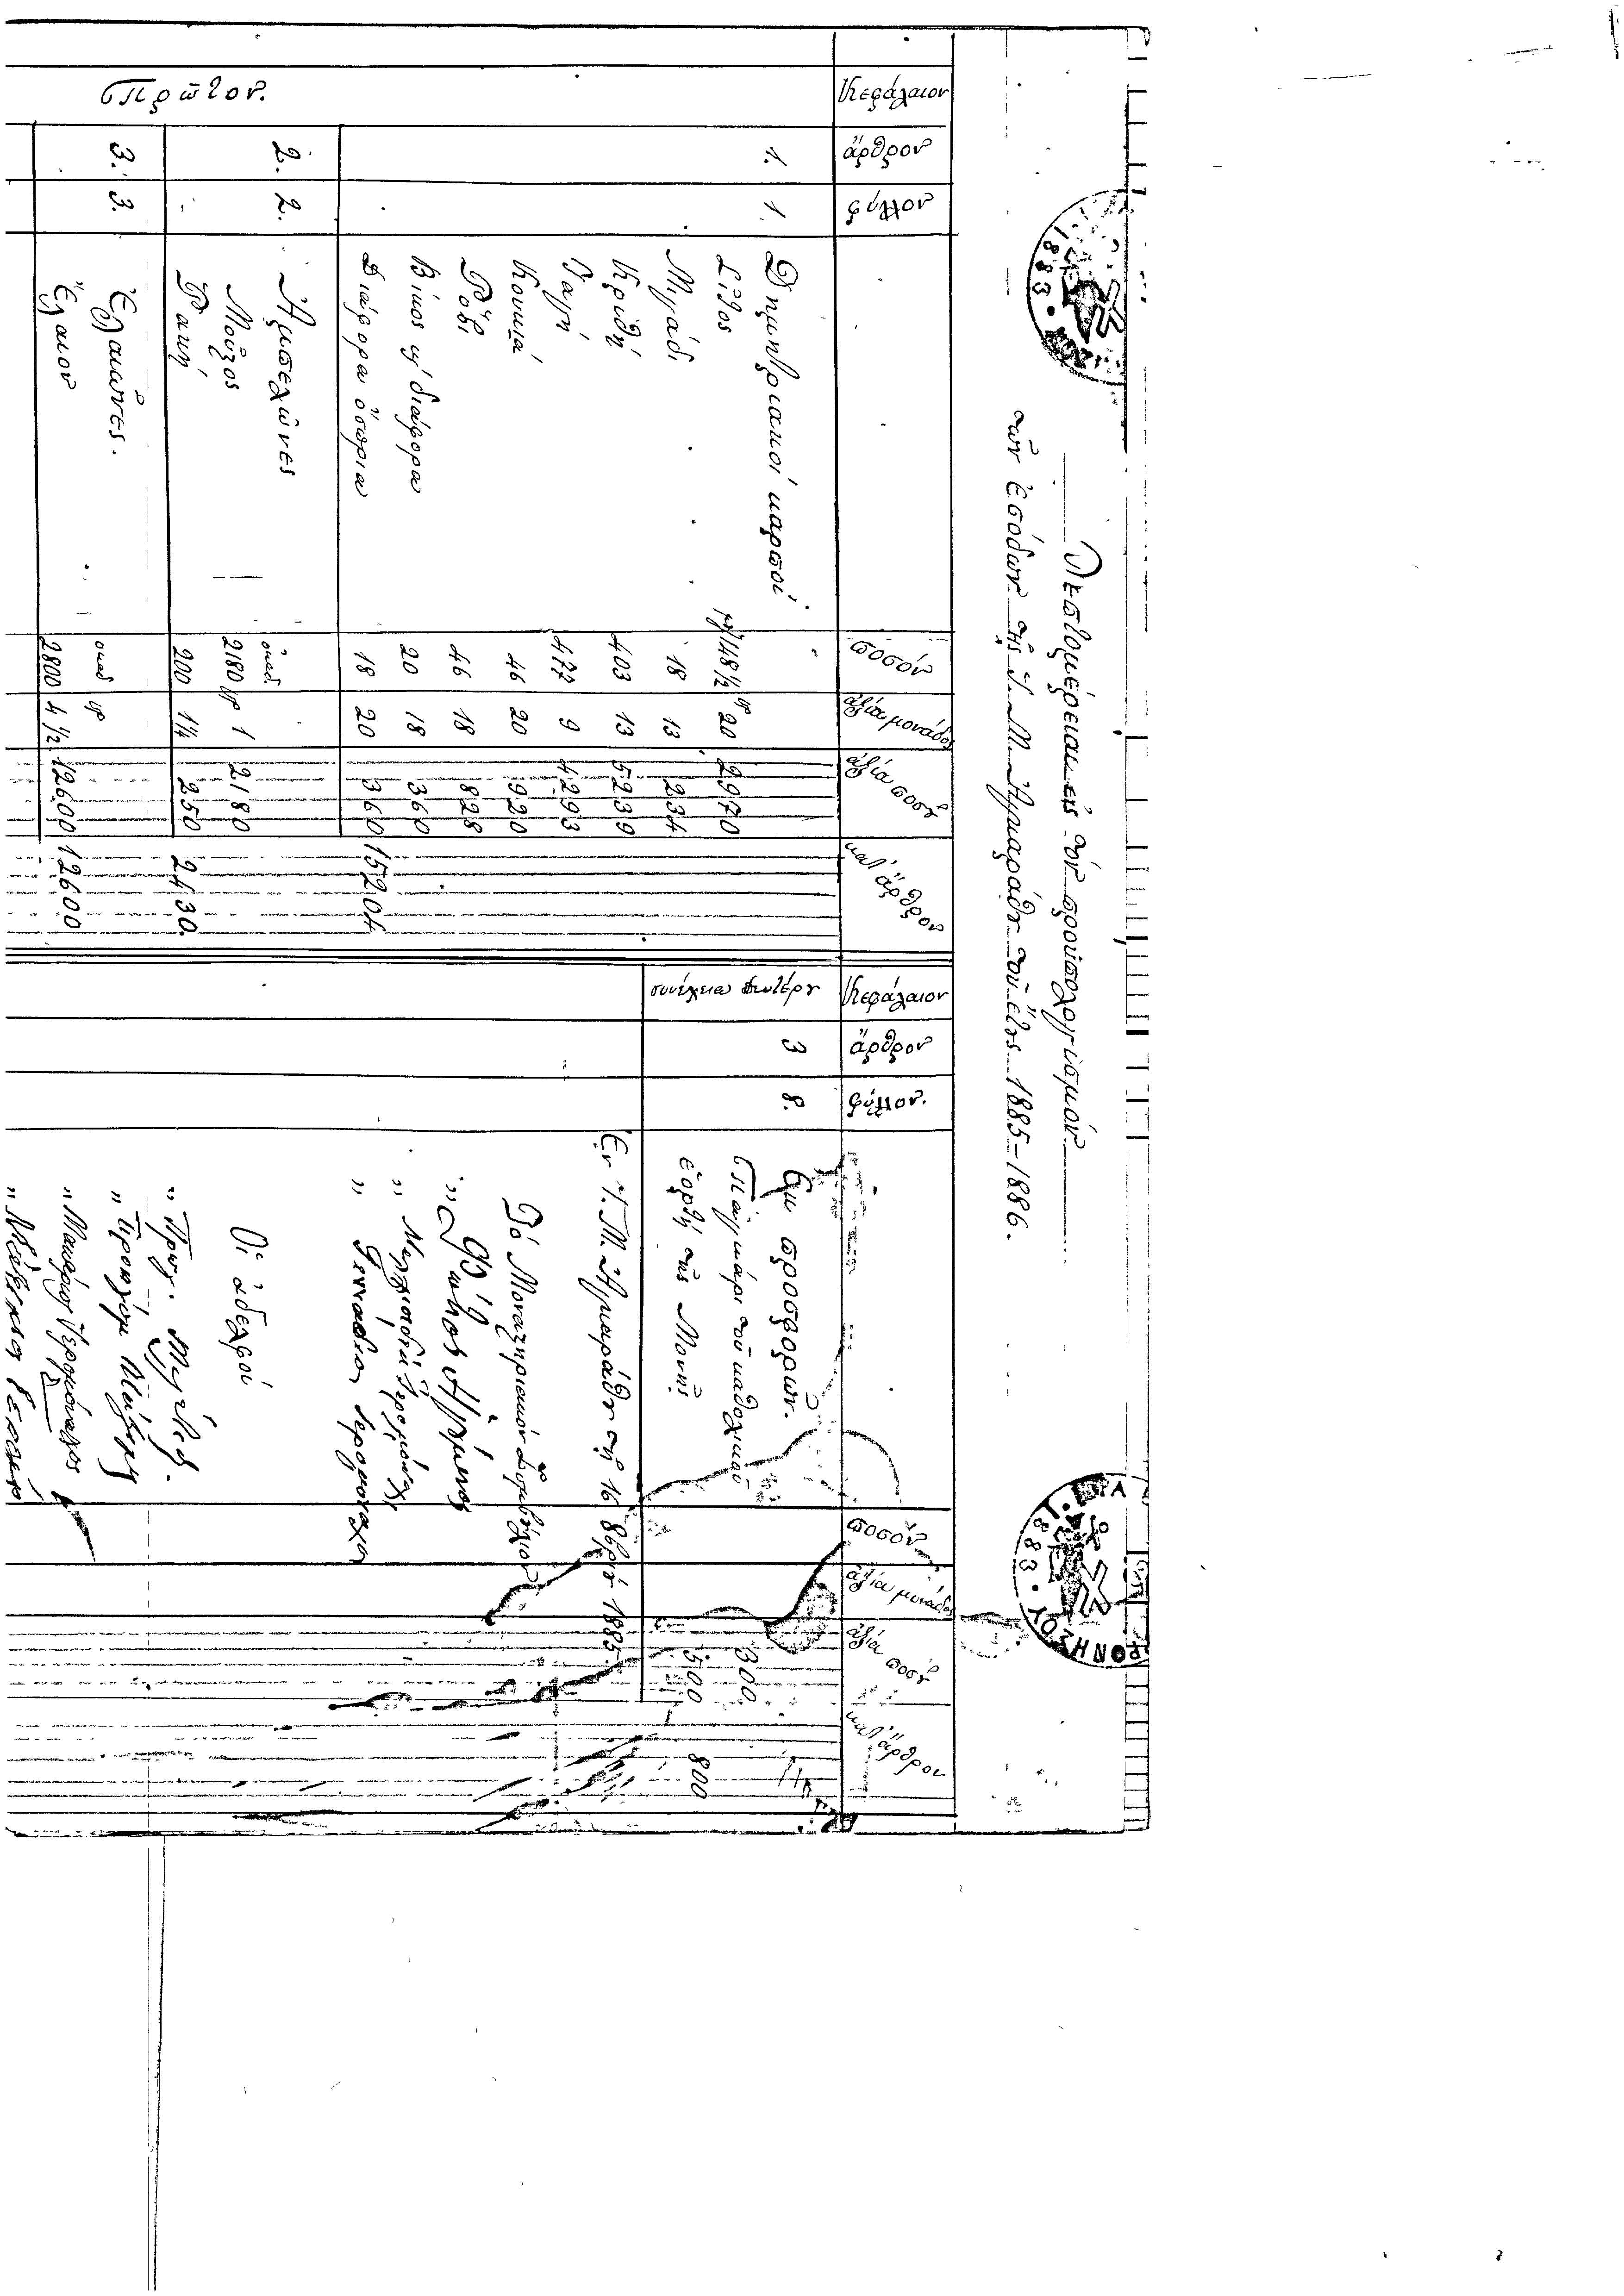 Λεπτομέρειαι εἰς τὸν προϋπολογισμόν
τῶν ἐσόδων τῆς Ἱ. Μ. Ἀγκαράθου τοῦ ἔτους 1885-1886.
Κεφάλαιον ἄρθρον φύλλον ποσόν ἀξία μονάδος ἀξία ποσοῦ κατ' ἄρθρον
Πρῶτον.
1. 1. Δημητριακοὶ καρποί
Σῖτος 148 1/2 γρ 20 2970
Μιγάδι 18 13 234
Κριθή 403 13 5239
Ταγή 477 9 4293
Κουκιά 46 20 920
Ρόβι 46 18 828
Βίκος ἢ διάφορα 20 18 360
Διάφορα ὄσπρια 18 20 360 15204
2. 2. Ἀμπελῶνες
ὀκάδ.
Μοῦστος 2180 γρ 1 2180
Ρακή 200 1 1/4 250 2430.
3. 3. Ἐλαιῶνες.
ὀκάδ γρ
Ἔλαιον 2800 4 1/2 12600 12600
Κεφάλαιον ἄρθρον φύλλον. ποσόν ἀξία μονάδος ἀξία ποσοῦ κατ' ἄρθρον
συνέχεια δευτέρου
3 8. Ἐκ προσφορῶν.
Παγκάρι τοῦ καθολικοῦ 300
ἑορτὴ τῆς Μονῆς 500 800
Ἐν Ἱ. Μ. Ἀγκαράθου τῇ 16 8βρίου 1885.
Τὸ Μοναστηριακὸν Συμβούλιον
" Μελχισεδὲκ Ἱερομόναχος
" Γεννάδιος Ἱερομόναχος
Οἱ ἀδελφοί
" Μακάριος Ἱερομόναχος